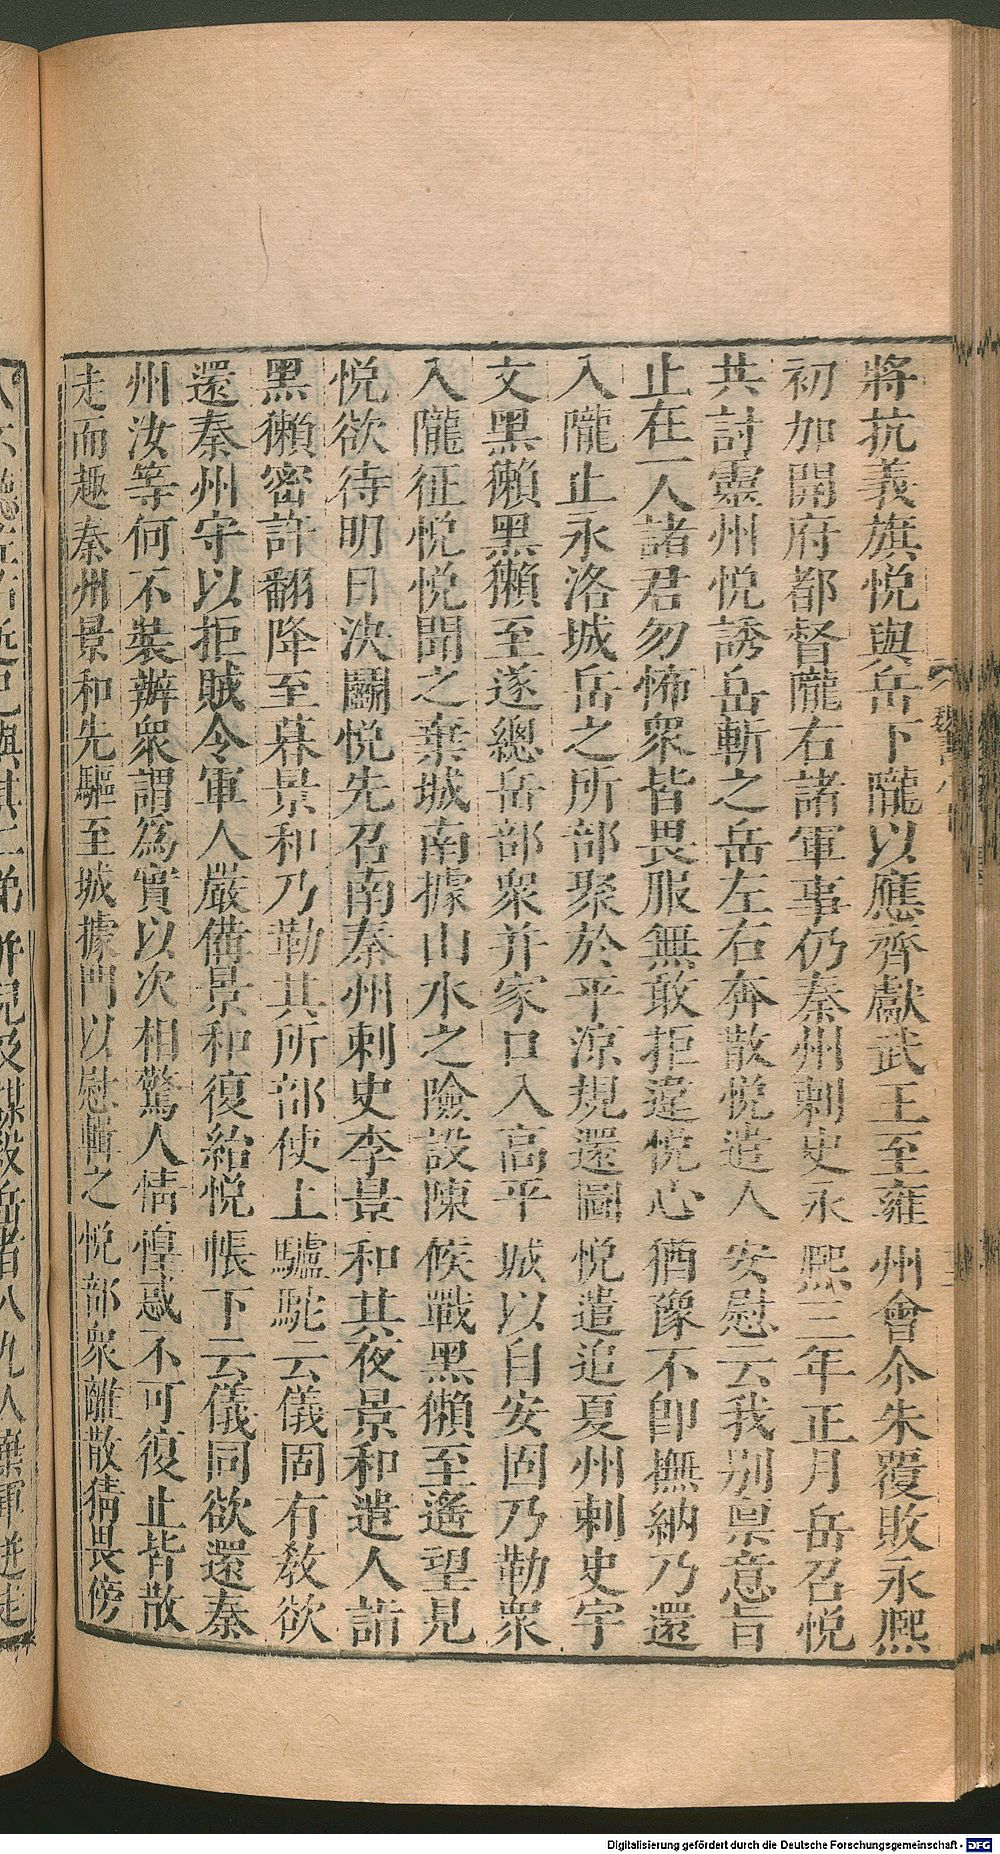 將抗義旗悅與岳下隴以應齊獻武王至雍州會尒朱覆敗永熙
初加開府都督隴右諸軍事仍秦州刺史永熙三年正月岳召悅
共討靈州悅誘岳斬之岳左右奔散悅遣人安慰云我別稟意旨
止在一人諸君勿怖衆皆畏服無敢拒違悅心猶豫不卽撫納乃還
入隴止永洛城岳之所部聚於平涼規還圖悅遣追夏州刺史宇
文黑獺黑獺至遂總岳部衆并家口入高平城以自安固乃勒衆
入隴征悅悅聞之棄城南據山水之險設陳候戰黑獺至遙望見
悅欲待明日決鬭悅先召南秦州刺史李景和其夜景和遣人詣
黑獺密許翻降至暮景和乃勒其所部使上驢駝云儀固有敎欲
還秦州守以拒賊令軍人嚴備景和復紿悅帳下云儀同欲還秦
州汝等何不裝辦衆謂爲實以次相驚人情惶惑不可復止皆散
走而趣秦州景和先驅至城據門以慰輯之悅部衆離散猜畏傍
Digitalisierung gefördert durch die Deutsche Forschungsgemeinschaft - DFG